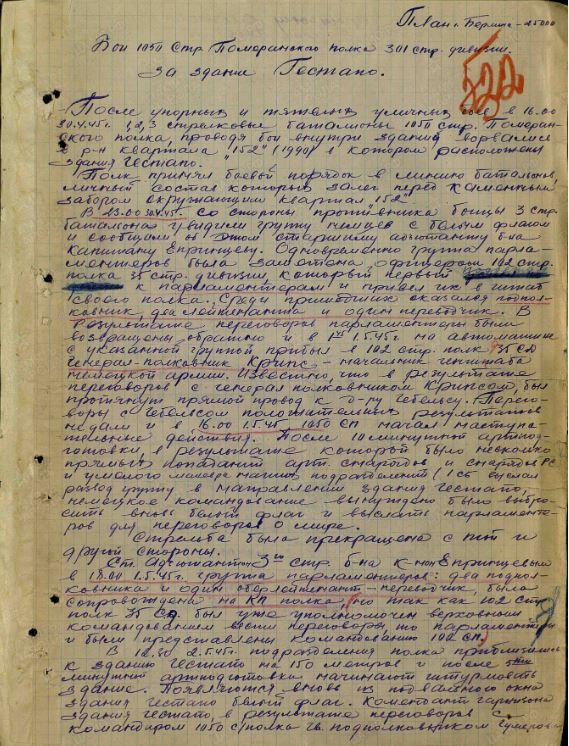 План г. Берлина - 25000
522
Бои 1050 стр. Померанского полка 301 стр. дивизии.
За здание Гестапо.
После упорных и тяжелых уличных боев в 16.00
30.4.45г. 1, 2, 3 стрелковые батальоны 1050 стр. Померан-
ского полка, проводя бои внутри зданий ворвались
в р-н квартала "152" (1990) в котором расположены
здания Гестапо.
Полк принял боевой порядок в линию батальонов,
личный состав которых залег перед каменным
забором окружающим квартал "152".
В 23.00 30.4.45. со стороны противника бойцы 3 стр.
батальона увидили группу немцев с белым флагом
и сообщили о старшему адъютанту б-на
капитану Епринцеву. Одновременно группа парла-
ментеров была замечена офицером 102 стр.
полка 35 стр. дивизии который первый
к парламентерам и привел их в штаб
своего полка. Среди пришедших оказался подпол-
ковник, два лейтенанта и один переводчик. В
результате переговоров парламентеры были
возвращены обратно и в 1.5.45г. на автомашине
с указанной группой прибыл в 102 стр. полк 35 СД
Генерал-полковник Крипс - начальник генштаба
немецкой армии. Известно, что в результате
переговоров с генерал полковником Крипсом, был
протянут прямой провод к д-ру Гебельсу. Перего-
воры с Гебельсом положительных результатов
не дали и в 16.00 1.5.45г. 1050 СП начал наступа-
тельные действия. После 10 минутной артпод-
готовки, в результате которой было несколько
прямых попаданий арт. снарядов и снарядов РС
и умелого маневра наших подразделений (1 сб выслал
развед группу в направлении здания гестапо,
немецкое командование вынуждено было выбро-
сить вновь белый флаг и выслать парламенте-
ров для переговоров о мире.
Стрельба была прекращена с той и
другой стороны.
Ст. Адъютантом 3го стр. б-на к-ном Епринцевым
в 18.00 1.5.45г. группа парламентеров: два подпол-
ковника и один обер лейтенант - переводчик, была
сопровождена на КП полка, но так как 102 стр.
полк 35 СД был уже уполномочен верховным
командованием вести переговоры, то парламентеры
и были представлены командованию 102 СП.
В 12.30 2.5.45г. подразделения полка приблизились
к зданию гестапо на 150 метров и после
минутной артподготовки начинают штурмовать
здание. Появляются вновь из подвального окна
здания гестапо белый флаг. Комендант гарнизона
здания гестапо, в результате переговоров с
командиром 1050 с/полка гв. подполковником